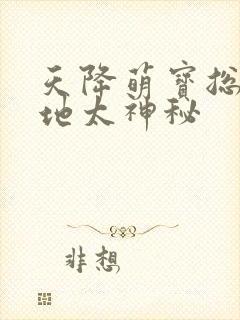 天降萌宝总
地太神秘
非想